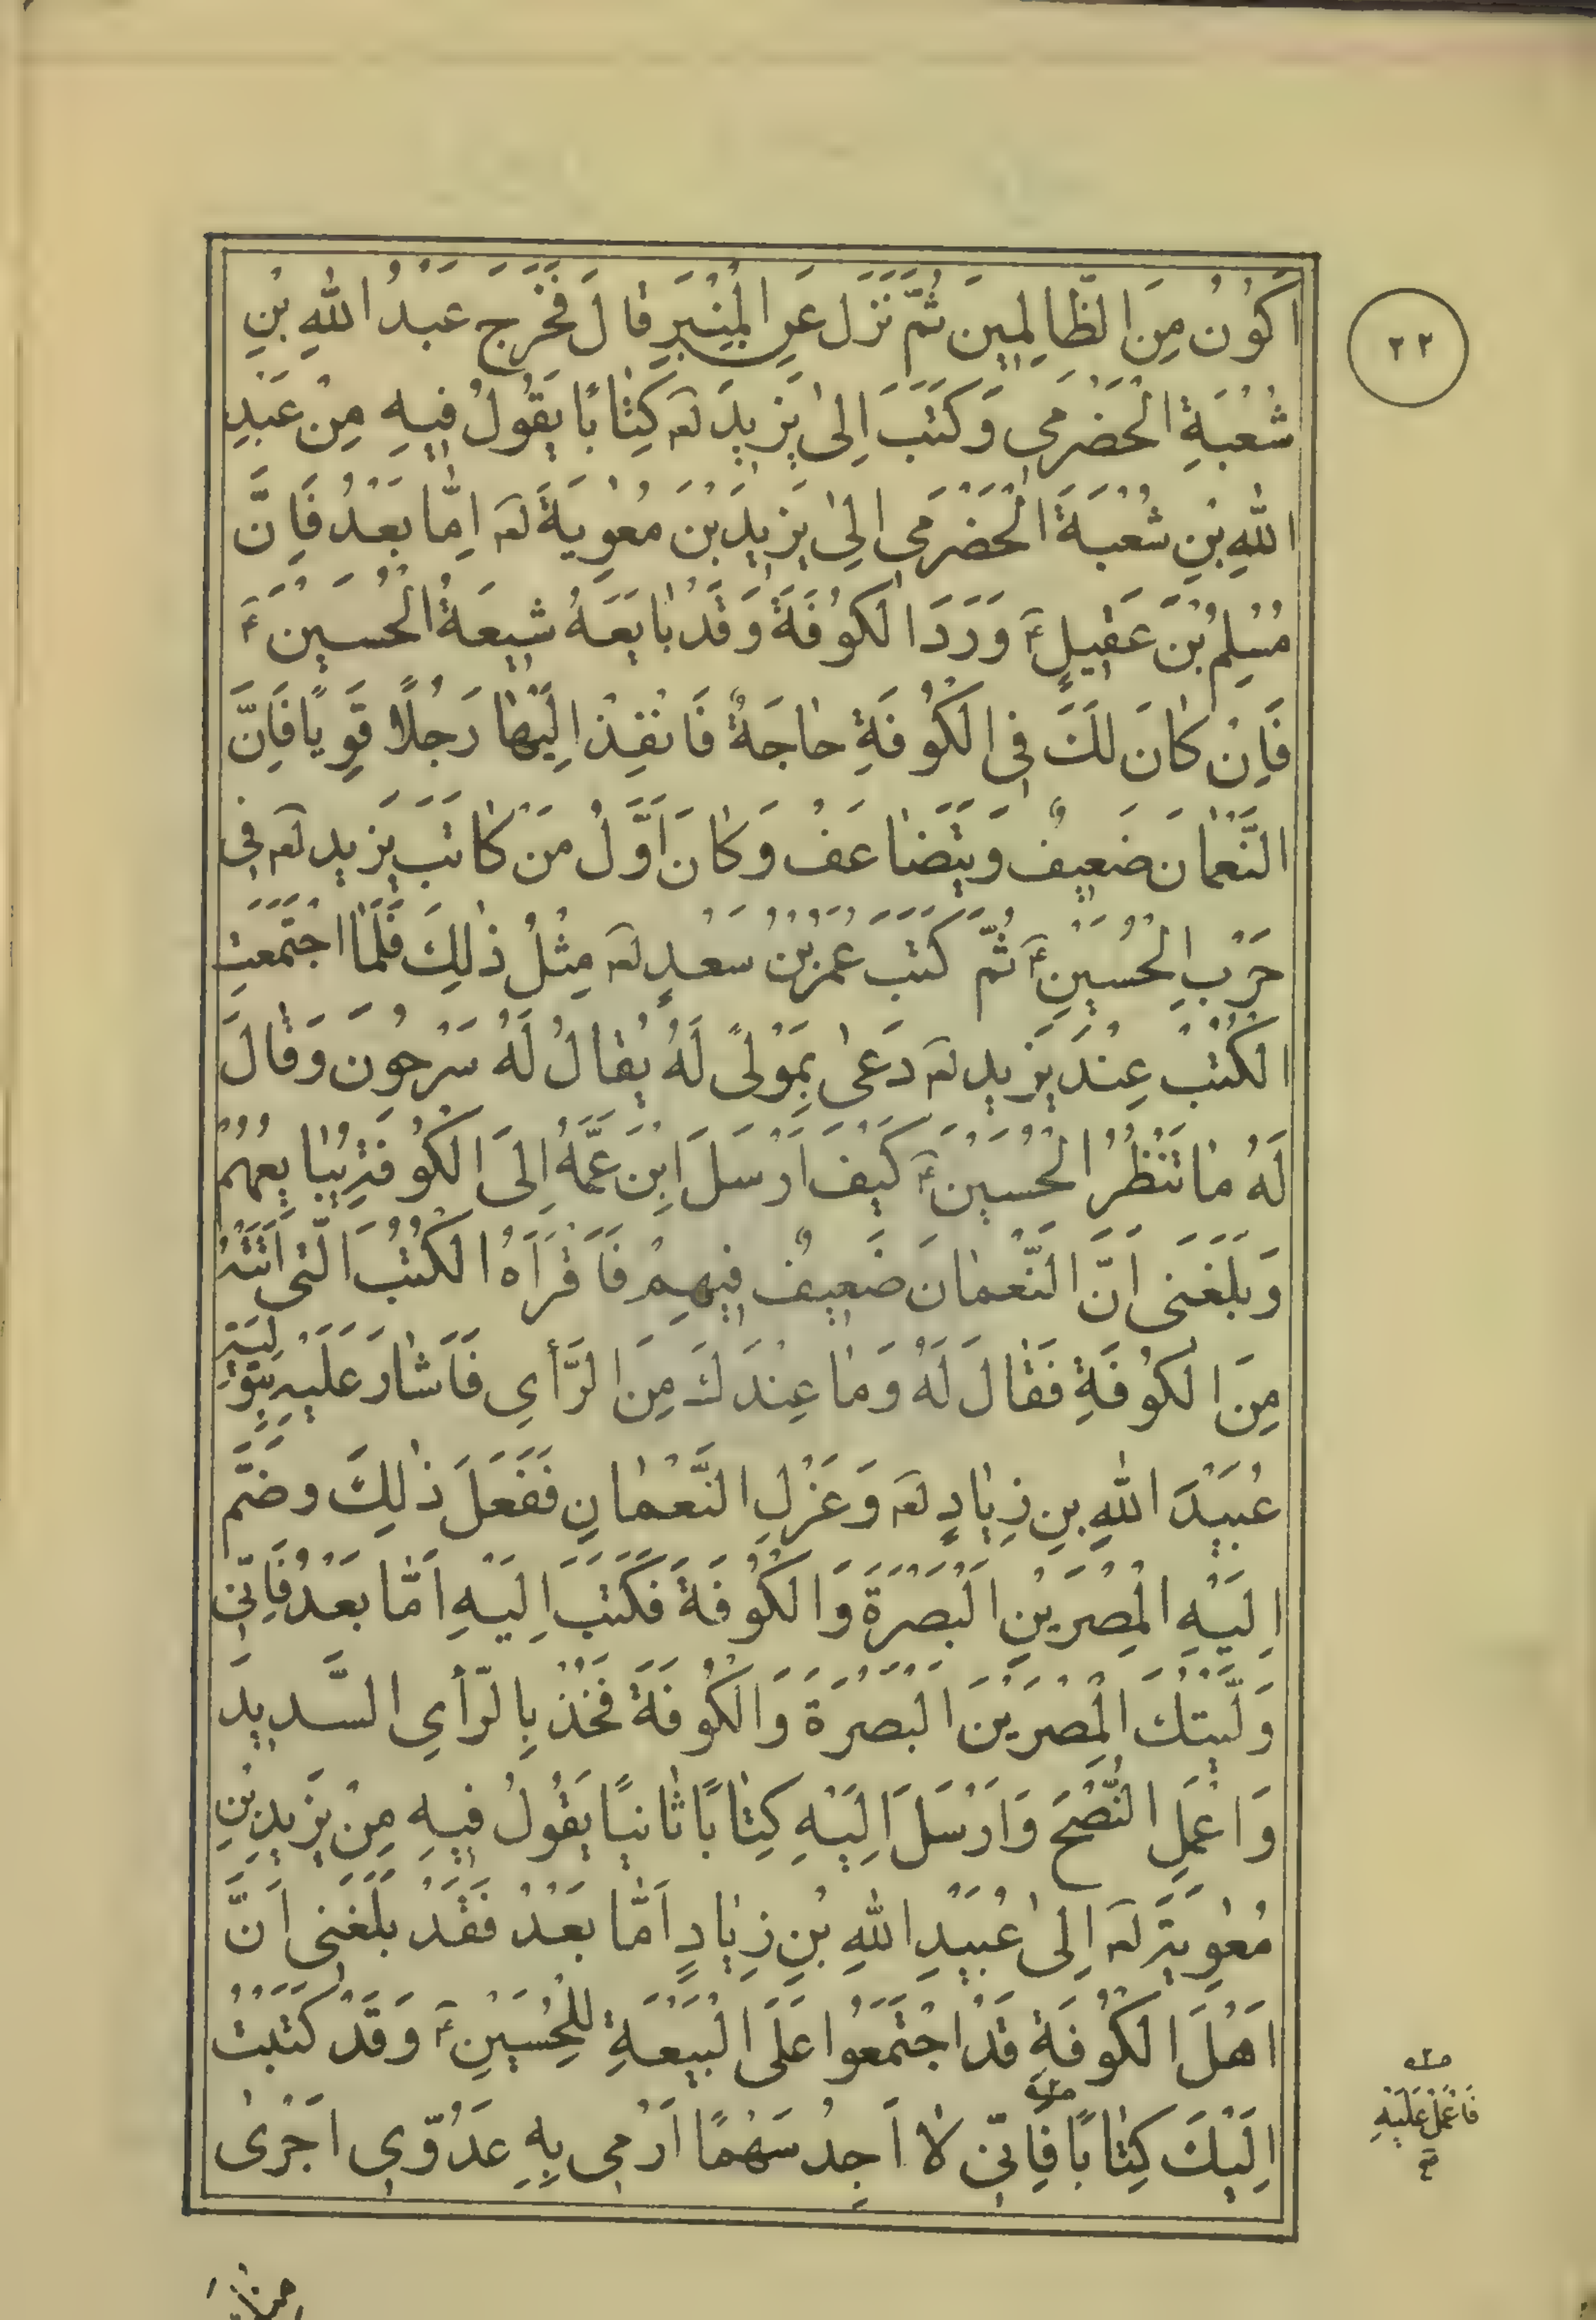 ٢٢
اَكُونُ مِنَ الظّٰالِمِينَ ثُمَّ نَزَلَ عَنِ الْمِنْبَرِ قٰالَ فَخَرَجَ عَبْدُ اللهِ بْنِ
شُعْبَةِ الْحَضْرَمِى وَكَتَبَ اِلىٰ يَزِيدَ لعہ كِتٰابًا يَقُولُ فِيهِ مِنْ عَبْدِ
اللهِ بْنِ شُعْبَةَ الْحَضْرَمِى اِلىٰ يَزِيدَ بْنَ مُعٰوِيَةَ لعہ اَمّٰا بَعْدُ فَاِنَّ
مُسْلِمُ بْنَ عَقِيلٍ ؑ وَرَدَ الْكُوفَةَ وَقَدْ بٰايَعَهُ شِيعَةُ الْحُسَيْنِ ؑ
فَاِنْ كٰانَ لَكَ فِى الْكُوفَةِ حٰاجَةٌ فَانْفِذْ اِلَيْهٰا رَجُلًا قَوِيًا فَاِنَّ
النُّعْمٰانَ ضَعِيفٌ وَيَتَضٰاعَفُ وَكٰانَ اَوَّلُ مَنْ كٰاتَبَ يَزِيدِ لعہ فِى
حَرْبِ الْحُسَيْنِ ؑ ثُمَّ كَتَبَ عُمَرُ بْنُ سَعْدٍ لعہ مِثْلُ ذٰلِكَ فَلَمَّا اجْتَمَعَتِ
الْكُتُبْ عِنْدَ يَزِيدِ لعہ دَعىٰ بِمَوْلىً لَهُ يُقٰالُ لَهُ سَرْحُونَ وَقٰالَ
لَهُ مٰا تَنْظُرُ الْحُسَيْنَ ؑ كَيْفَ اَرْسَلَ ابْنَ عَمِّهُ اِلىَ الْكُوفَةِ يُبٰايِعُهُمْ
وَبَلَغَنى اَنَّ النُّعْمٰانَ ضَعِيفٌ فِيهِمْ فَاَقْرَاَهُ الْكُتُبَ الَّتى اَتَتْهُ
مِنَ الْكُوفَةِ فَقٰالَ لَهُ وَمٰا عِنْدَكَ مِنَ الرَّأىِ فَاَشٰارَ عَلَيْهِ بِتَوْلِيَةِ
عُبَيْدَ اللهِ بنِ زِيٰادٍ لعہ وَعَزْلِ النُّعْمٰانِ فَفَعَلَ ذٰلِكَ وضَمَّ
اِلَيْهِ الْمِصْرَيْنِ الْبَصْرَةَ وَالْكُوفَةَ فَكَتَبَ اِلَيْهِ اَمّٰا بَعْدُ فَاِنّى
وَلَّيْتُكَ الْمِصْرَيْنَ الْبَصْرَةَ وَالْكُوفَةَ فَخُذْ بِالرَّأىِ السَّدِيدَ
وَاعْمَلِ النُّصْحَ وَاَرْسَلَ اِلَيْهِ كِتٰابًا ثٰانيًا يَقُولُ فِيهِ مِنْ يَزِيدِ بْنِ
مُعٰوِيَةَ لعہ اِلىٰ عُبَيْدِ اللهِ بْنِ زِيٰادٍ اَمّٰا بَعْدُ فَقَدْ بَلَغَنِى اَنَّ
اَهْلَ الْكُوفَةِ قَدْ اجْتَمَعُوا عَلَى الْبَيْعَةِ لِلْحُسَيْنِ ؑ وَقَدْ كَتَبْتُ
اِلَيْكَ كِتٰابًا فَاِنّى لاٰ اَجِدُ سَهْمًا اَرْمِى بِهِ عَدُوِّى اَجْرىٰ
فَاعْمَلْ عَلَيْهِ